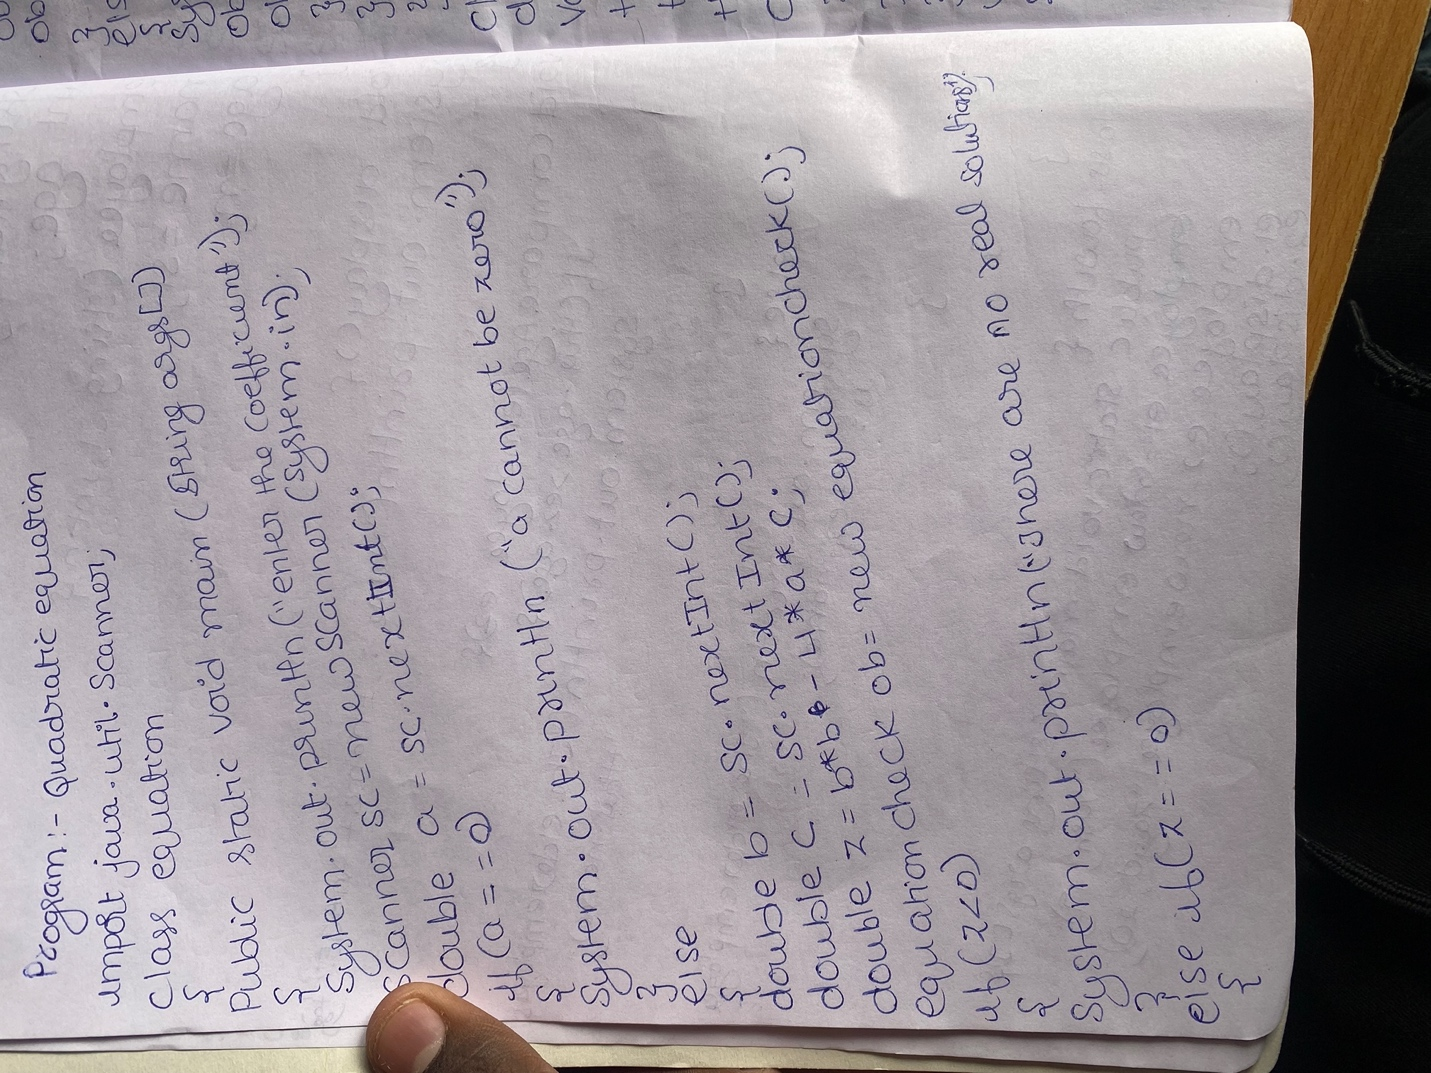 Program:- Quadratic equation
import java.util.Scanner;
class equation
{
Public static void main (String args[])
{
System.out.println("enter the coefficient");
Scanner sc=new Scanner (System.in);
double a = sc.nextInt();
if (a==0)
{
System.out.println ("a cannot be zero");
}
else
{
double b = sc.nextInt();
double c = sc.nextInt();
double z = b*b - 4*a*c;
equationcheck ob= new equationcheck();
if (z<0)
{
System.out.println("There are no real solutions");
}
else if(z==0)
{